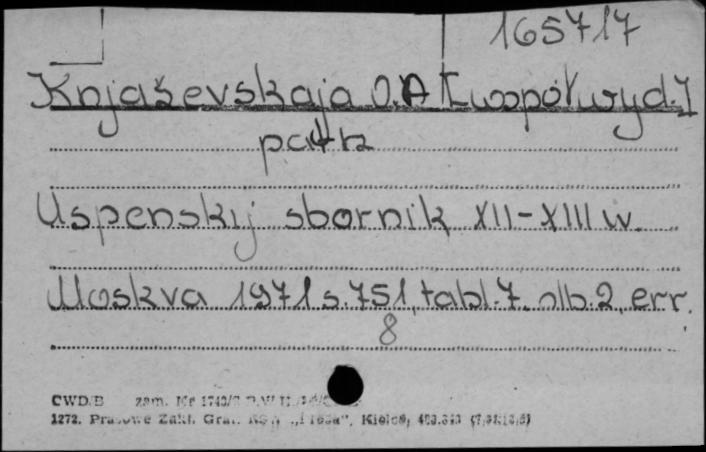 165717
Knjaševskaja O.A [współwyd.]
patrz
Uspenskij sbornik XII-XIII w.
Moskva 1971 s. 751, tabl. 7. nlb. 2, err.
8
CWD/B zam. Nr
1272. Prasowe Zakł. Graf. RSW „Prasa”, Kielce,